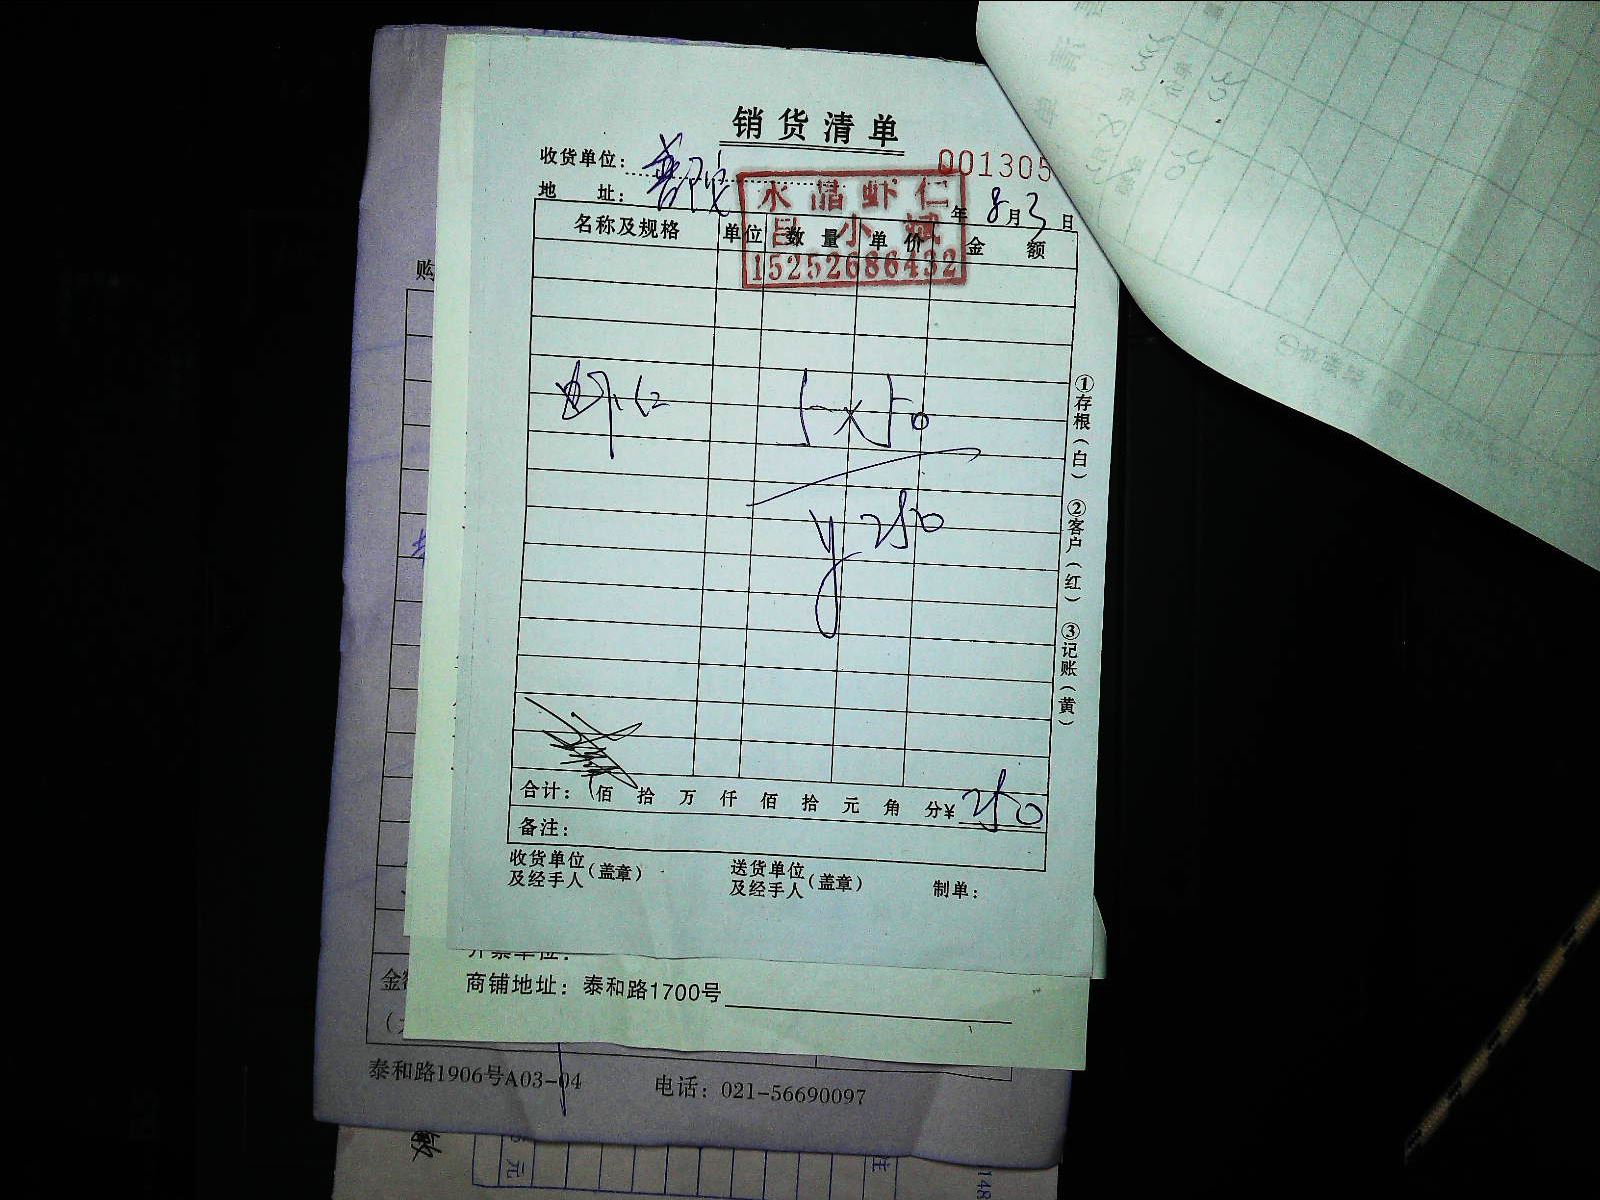 销货清单
收货单位：
001305
地 址：
年 8月3日
水晶虾仁
吕小斌
15252686432
名称及规格 单位 数量 单价 金额
虾仁 5×50
¥250
合计： 佰 拾 万 仟 佰 拾 元 角 分¥ 250
备注：
收货单位及经手人（盖章） 送货单位及经手人（盖章） 制单：
①存根（白） ②客户（红） ③记账（黄）
购
开票单位：
商铺地址：泰和路1700号
金
泰和路1906号A03-04 电话：021-56690097
元
148